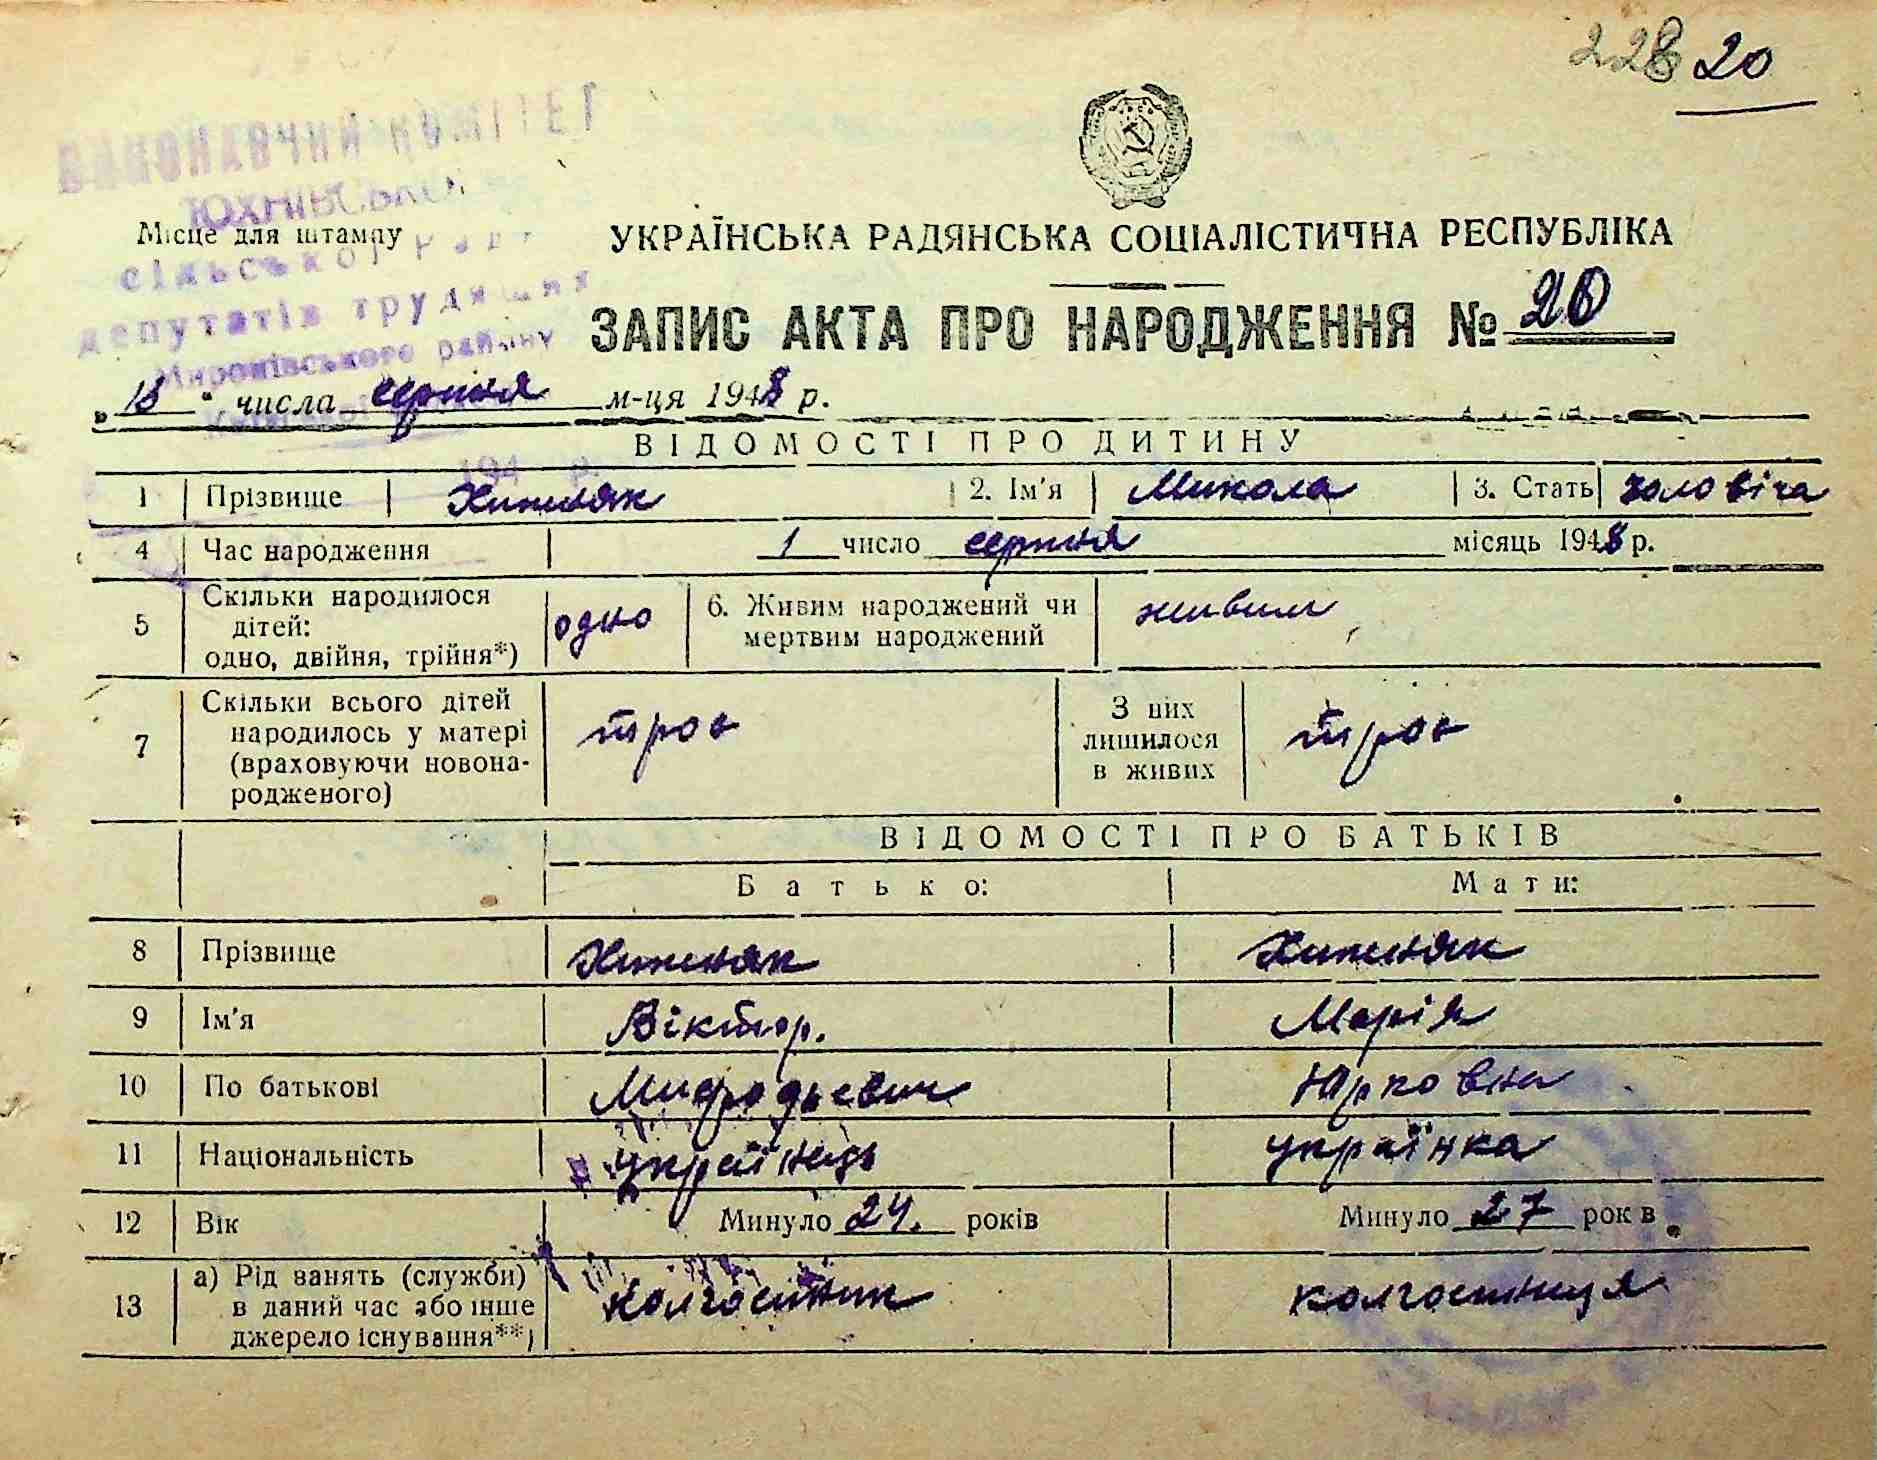 228 20
ВИКОНАВЧИЙ КОМІТЕТ
ЮХНІВСЬКОЇ
Місце для штампу
сільської Ради
депутатів трудящих
Миронівського району
УКРАЇНСЬКА РАДЯНСЬКА СОЦІАЛІСТИЧНА РЕСПУБЛІКА
ЗАПИС АКТА ПРО НАРОДЖЕННЯ № 20
„ 18 " числа серпня м-ця 1948 р.
194 р.
ВІДОМОСТІ ПРО ДИТИНУ
1 Прізвище Хижняк 2. Ім'я Микола 3. Стать чоловіча
4 Час народження 1 число серпня місяць 1948 р.
5 Скільки народилося дітей: одно, двійня, трійня*) одно 6. Живим народжений чи мертвим народжений живим
7 Скільки всього дітей народилось у матері (враховуючи новонародженого) троє З них лишилося в живих троє
ВІДОМОСТІ ПРО БАТЬКІВ
Батько: Мати:
8 Прізвище Хижняк Хижняк
9 Ім'я Віктор. Марія
10 По батькові Мифодьевич Юрковна
11 Національність українець українка
12 Вік Минуло 24. років Минуло 27 рок в
13 а) Рід занять (служби) в даний час або інше джерело існування**) колгоспник колгоспниця